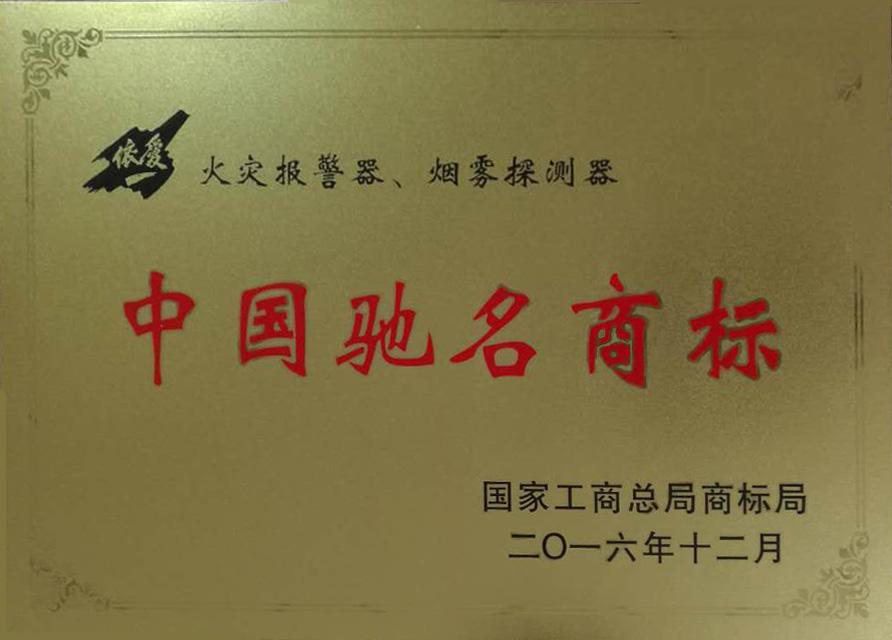 依爱 火灾报警器、烟雾探测器
中国驰名商标
国家工商总局商标局
二〇一六年十二月